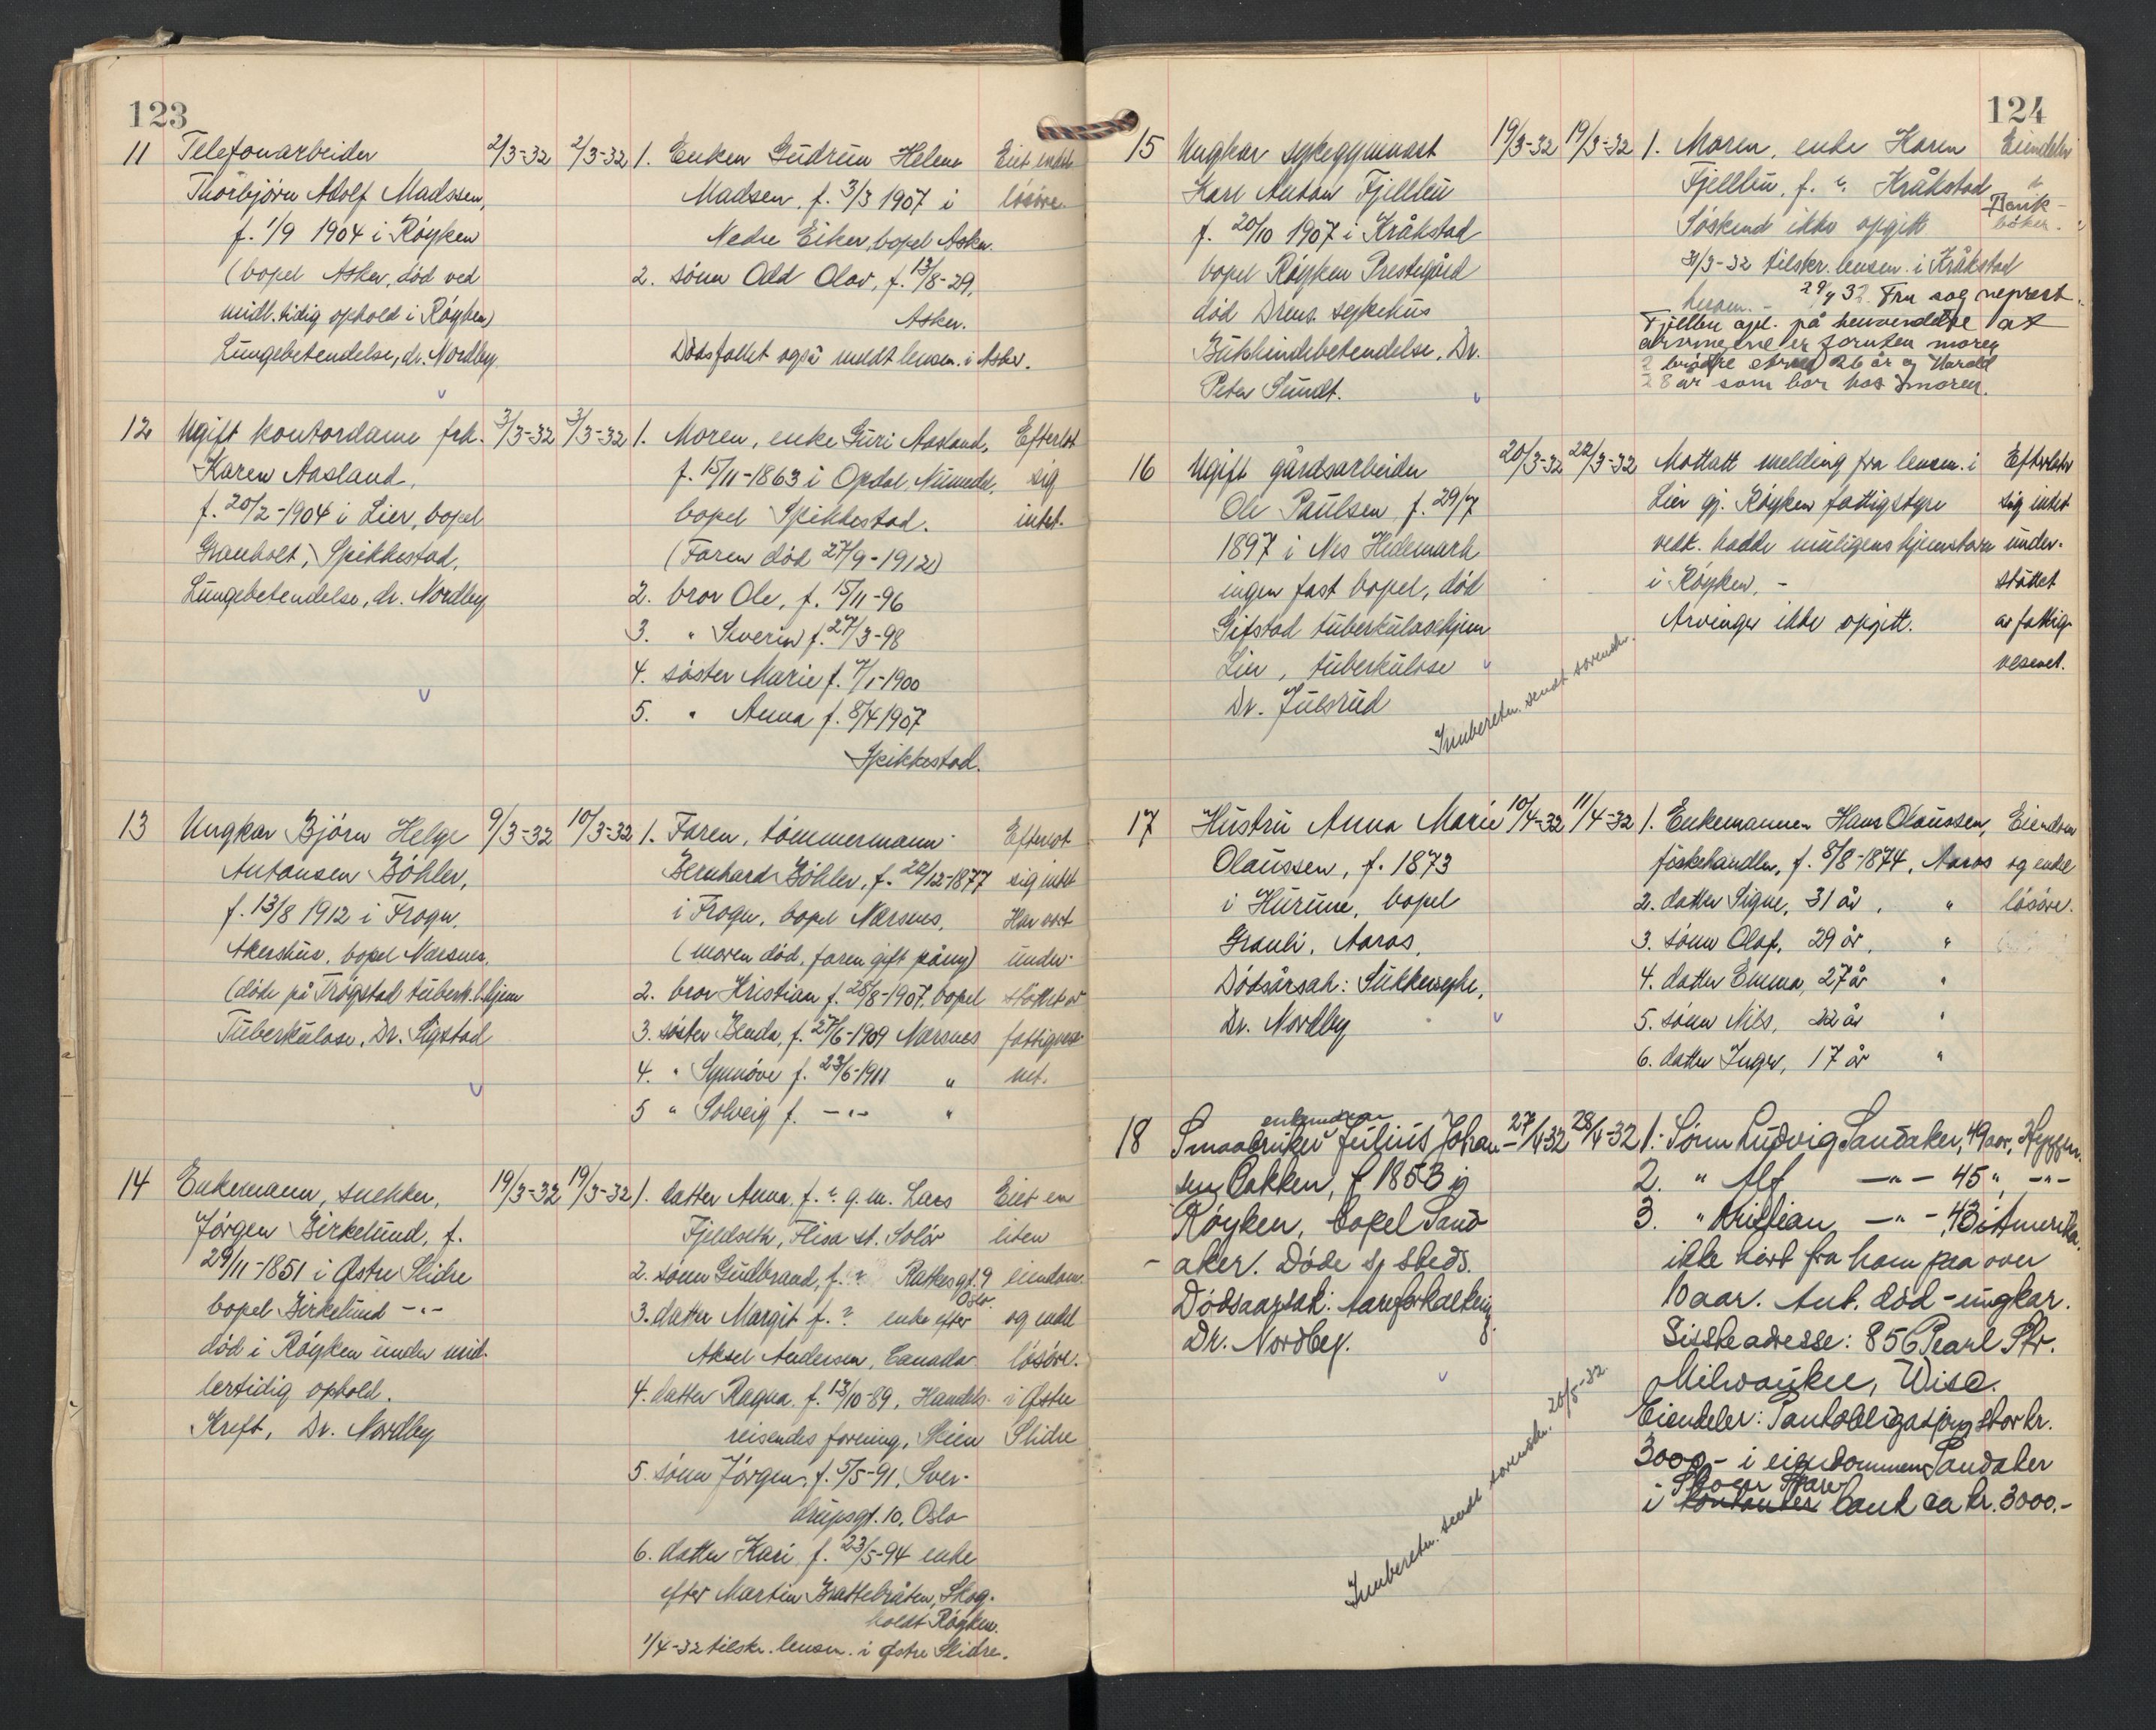 123
11 Telefonarbeider 2/3-32 2/3-32 1. Enken Gudrun Helene Eiet endel
Thorbjörn Adolf Madssen, Madsen, f. 3/3 1907 i lösöre.
f. 1/9 1904 i Röyken Nedre Eiker, bopel Asker.
(bopel Asker, död ved 2. sönn Odd Olav, f. 13/8-29,
midl.tidig ophold i Röyken) Asker.
Lungebetendelse, dr. Nordby Dödsfallet også meldt lensm. i Asker.
12 Ugift kontordame frk. 3/3-32 3/3-32 1. Moren, enke Guri Aasland, Efterlot
Karen Aasland, f. 15/11-1863 i Opdal, Numedal, sig
f. 20/2-1904 i Lier, bopel bopel Spikkestad. intet.
Granholt, Spikkestad. (Faren död 27/9-1912)
Lungebetendelse, dr. Nordby 2. bror Ole, f. 15/11-96
3. " Severin f. 27/3-98
4. söster Marie f. 7/1-1900
5. " Anna f. 8/4 1907
Spikkestad.
13 Ungkar Björn Helge 9/3-32 10/3-32 1. Faren, tömmermann Efterlot
Antonsen Böhler, Bernhard Böhler, f. 22/12-1877 sig intet
f. 13/8 1912 i Frogn, i Frogn, bopel Nærsnes, Har vært
Akershus, bopel Nærsnes, (moren död, faren gift påny) under-
(döde på Trögstad tuberk.l.hjem 2. bror Kristian f. 28/8-1907, bopel støttet av
Tuberkulose, Dr. Sigstad 3. söster Benda, f. 27/6-1909 Nærsnes fattigves-
4. " Synnöve f. 23/6-1911 " net.
5 " Solveig f. -"- "
14 Enkemann, snekker, 19/3-32 19/3-32 1. datter Anna, f. ? g.m. Lars Eiet en
Jörgen Birkelund, f. Fjeldseth, Flisa st. Solör liten
29/11-1851 i Østre Slidre 2. sönn Gudbrand, f. ? Ratkesgt. 9 eiendom
Oslo.
bopel Birkelund -"- 3. datter Margit f. ? enke efter og endel
död i Röyken under mid- Aksel Andersen, Canada lösöre.
lertidig ophold. 4. datter Ragna, f. 13/10-89, Handels- i Østre
Kreft, Dr. Nordby reisendes forening, Skien Slidre
5. sönn Jörgen, f. 5/5-91, Sver-
drupsgt. 10, Oslo
6. datter Kari, f. 23/5-94 enke
efter Martin Brattebråten, Skog-
holdt Röyken.
1/4-32 tilskr. lensm. i Østre Slidre.
124
15 Ungkar sykegymnast 19/3-32 19/3-32 1. Moren, enke Karen Eiendeler
Karl Anton Fjellbu Fjellbu, f. ? Kråkstad
f. 20/10 1907 i Kråkstad Söskend ikke opgitt Bank-
böker.
bopel Röyken Prestegård 21/3-32 tilskr. lensm. i Kråkstad
död Drms. sykehus 29/4 32. Fru sogneprest
Bukhindebetendelse, Dr. Fjellbu opl. på henvendelse at
Peter Sundt. arvingene er foruten moren
2 brödre Arne 26 år og Harald
28 år som bor hos moren.
16 Ugift gårdsarbeider 20/3-32 22/3-32 Mottatt melding fra lensm. i Efterlater
Ole Paulsen, f. 29/7 Lier gj. Röyken fattigstyre sig intet
1897 i Nes Hedemark vedk. hadde muligens hjemstavn under-
ingen fast bopel, död i Röyken, - støttet
Gifstad tuberkuloschjem Arvinger ikke opgitt. av fattig-
Lier, tuberkulose vesenet.
Dr. Julsrud
Innberetn. sendt sorenskr.
17 Hustru Anna Marie 10/4-32 11/4-32 1. Enkemannen Hans Olaussen, Eiendom
Olaussen, f. 1873 fiskehandler, f. 8/8-1874, Aaros og endel
i Hurum, bopel 2. datter Signe, 31 år, " lösöre.
Granli, Aaros. 3. sönn Olaf, 29 år, "
Dödsårsak: Sukkersyke, 4. datter Emma, 27 år "
Dr. Nordby 5. sönn Nils, 22 år "
6. datter Inger, 17 år "
enkemann
18 Smaabruker Julius Johan- 27/4-32 28/4-32 1. Sönn Ludvig Sandaker, 49 aar, Hyggen.
sen Bakken, f 1853 i 2. " Alf -"- 45 " -"-
Röyken, bopel Sand- 3. " Kristian -"- 43 i Amerika.
aker. Döde s. steds. ikke hört fra ham paa over
Dödsaarsak: Aareforkalkning. 10 aar. Ant. död - ungkar.
Dr. Nordby. Sisste adresse: 856 Pearl Str.
Milwaukee, Wisc.
Eiendeler: Pantobligasjon stor kr.
3000,- i eiendommen Sandaker
i kontanter bank ca kr. 3000,-
Innberetn. sendt sorenskr. 20/5-32.